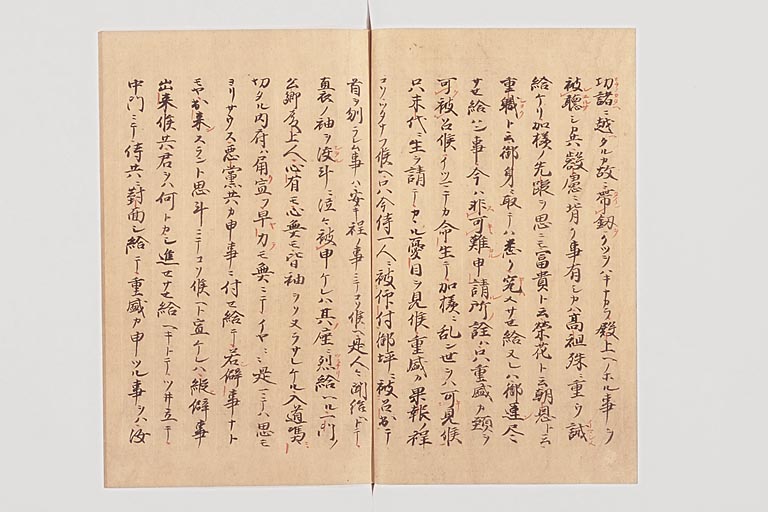 功諸ニ越タルカ故ニ帯釼クツヲハキナカラ殿上ヘノホル事ヲ
被聴シ共叡慮ニ背ク事有シカハ高祖殊ニ重ク誡
給ケリ加様ノ先蹤ヲ思ニモ冨貴ト云栄花ト云朝恩ト云
重職ト云御身ニ取テハ悉ク究メサセ給又レハ御運尽ニ
サセ給ハン事今ハ非可難申請所詮ハ只重盛カ頸ヲ
可被召候イツニテカ命生テ加様ニ乱ン世ヲハ可見候
只末代ニ生ヲ請テカヽル憂目ヲ見候重盛カ果報ノ程
コソツタナフ候ヘ只今侍一人ニ被仰付御坪ニ被召出テ
首ヲ刎ラレム事ハ安キ程ノ事ニテコソ候ヘ是人々聞給ヘトテ
直衣ノ袖ヲ絞斗ニ泣々被申ケレハ其座ニ烈給ヘル一門ノ
公卿殿上人心有モ心無モ皆袖ヲソヌラサレケル入道嗚
切タル内府ハ角宣フ早力モ無ニテイヤ々是マテハ思モ
ヨリサウス悪黨共カ申事ニ付セ給テ若僻事ナト
モヤ出来スラント思斗ニテコソ候ヘト宣ケレハ縦僻事
出来候共君ヲハ何トカシ進セサセ給ヘキトテツイ立テ
中門ニテ侍共ニ對面シ給テ重盛カ申ツル事ヲハ汝